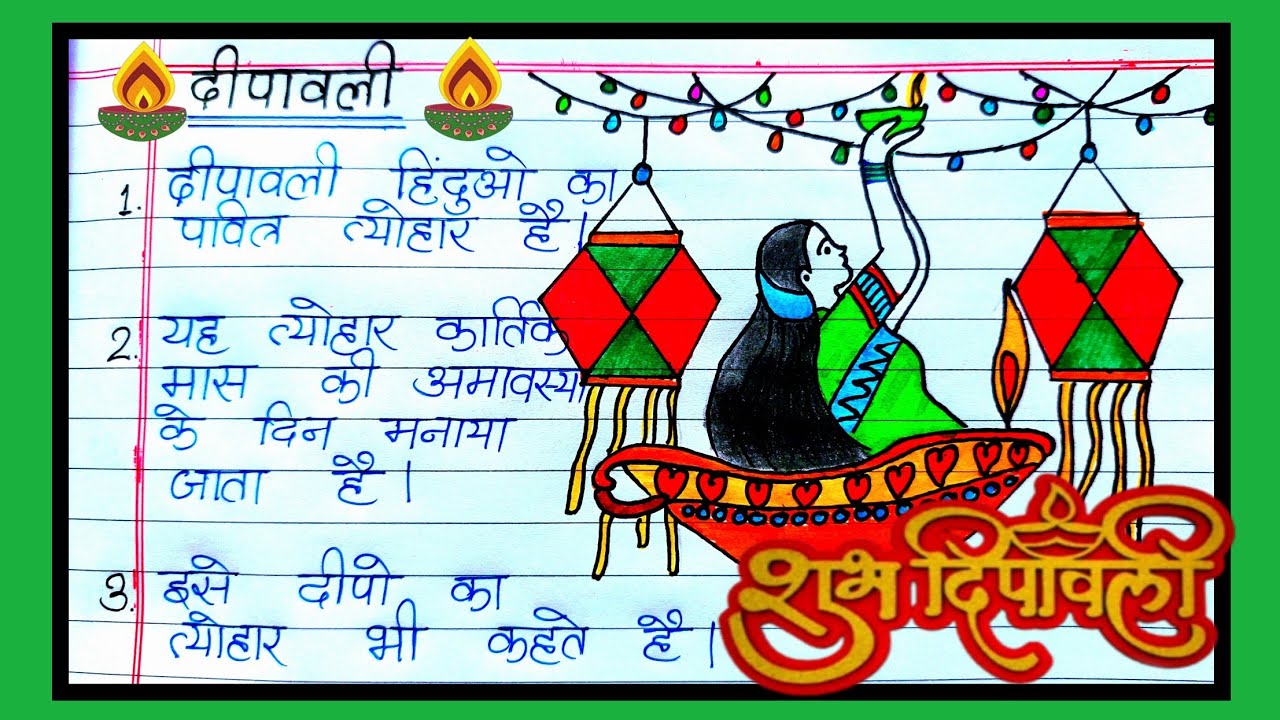 दीपावली
1. दीपावली हिंदुओ का
पवित्र त्योहार है।
2. यह त्योहार कार्तिक
मास की अमावस्या
के दिन मनाया
जाता है।
3. इसे दीपो का
त्योहार भी कहते है।
शुभ दिपावली